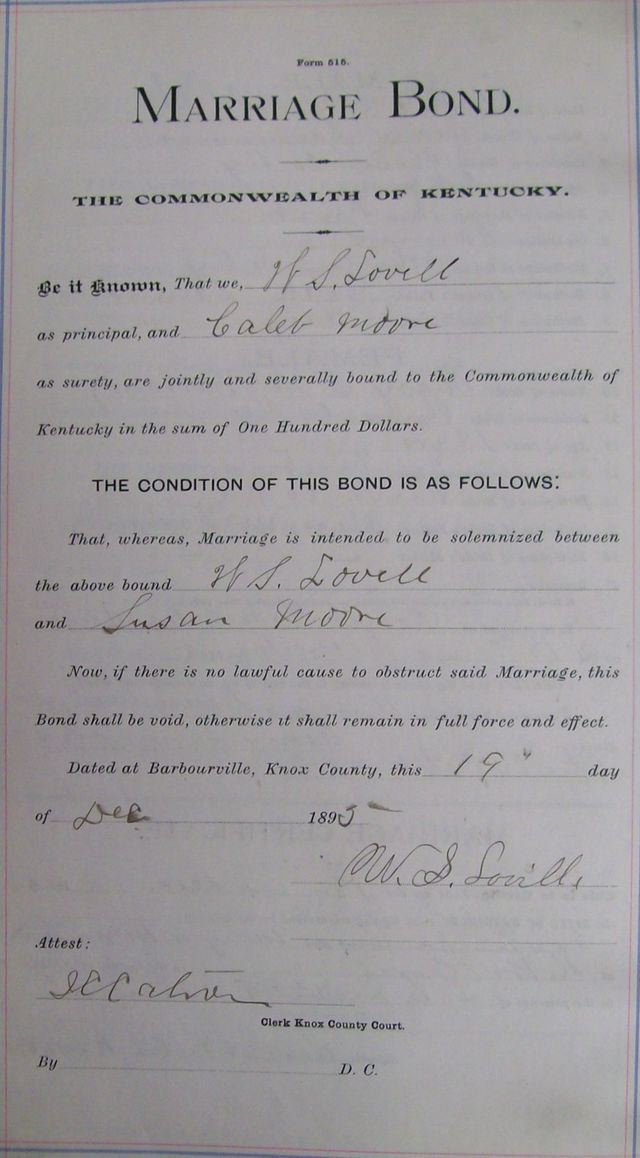 Form 515.
MARRIAGE BOND.
THE COMMONWEALTH OF KENTUCKY.
Be it Known, That we, W S. Lovell
as principal, and Caleb Moore
as surety, are jointly and severally bound to the Commonwealth of
Kentucky in the sum of One Hundred Dollars.
THE CONDITION OF THIS BOND IS AS FOLLOWS:
That, whereas, Marriage is intended to be solemnized between
the above bound W S. Lovell
and Susan Moore
Now, if there is no lawful cause to obstruct said Marriage, this
Bond shall be void, otherwise it shall remain in full force and effect.
Dated at Barbourville, Knox County, this 19" day
of Dec 1895
W. S.
Attest:
Clerk Knox County Court.
By D. C.